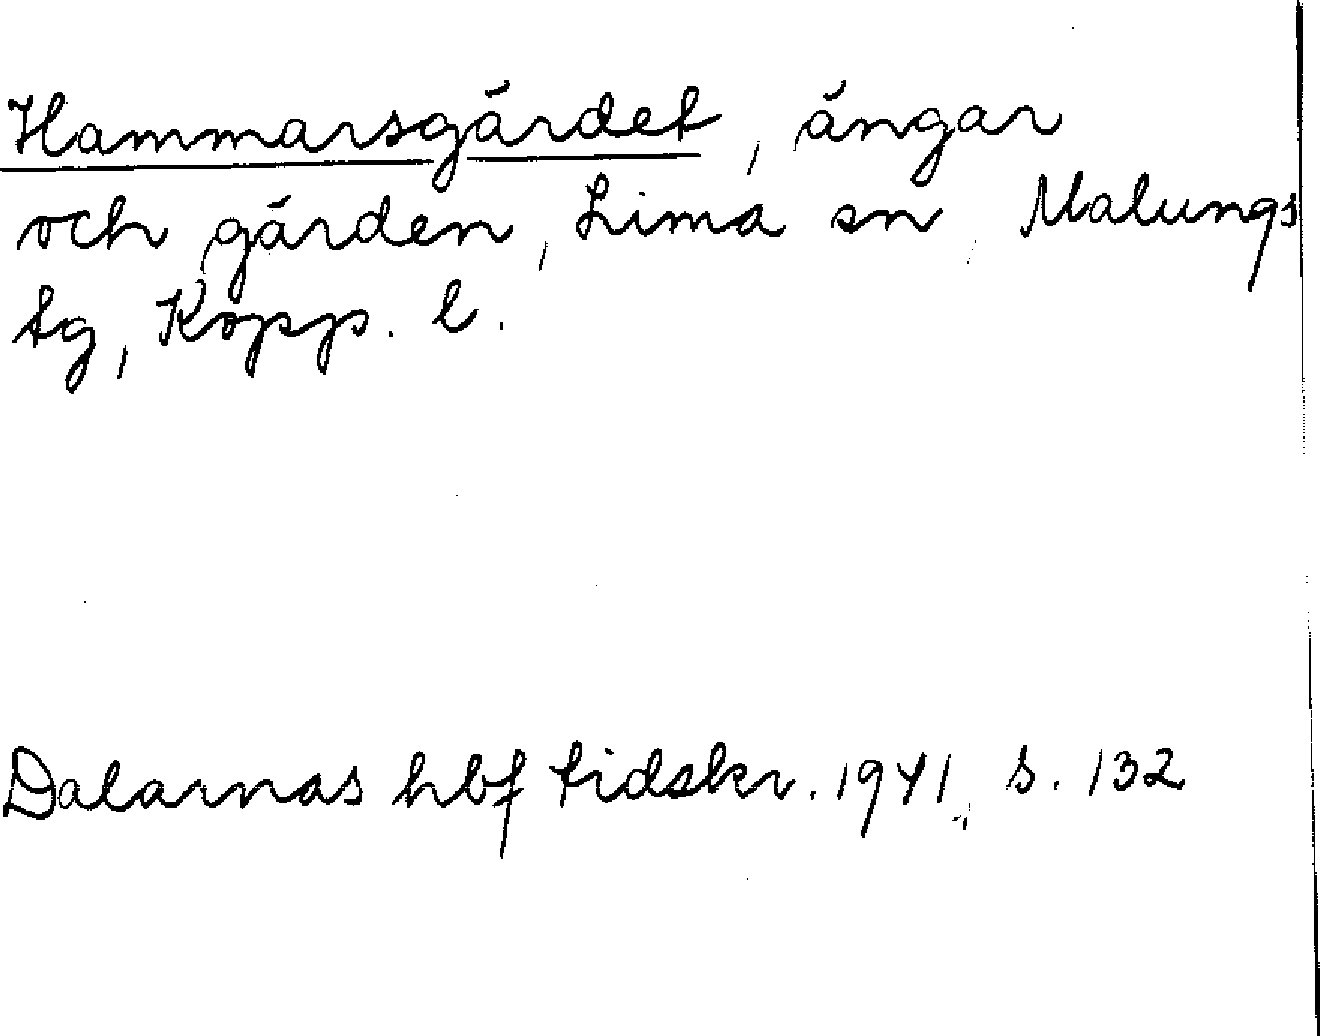 Hammarsgärdet, ängar
och gärden, Lima sn, Malungs
tg, Kopp. l.
Dalarnas hbf tidskr. 1941, s. 132